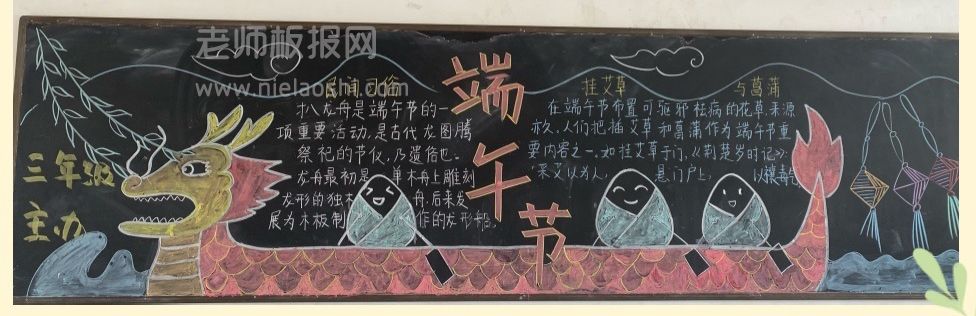 老师板报网
www.nielaoshi.com
端午节
三年级
主办
民间习俗
扒龙舟是端午节的一
项重要活动,是古代龙图腾
祭祀的节仪,乃遗俗也。
龙舟最初是 单木舟上雕刻
发形的独木 舟,后来发
展为木板制 作的龙形船。
挂艾草 与菖蒲
在端午节布置可驱邪祛病的花草,来源
亦久,人们把插艾草和菖蒲作为端午节重
要内容之一,如挂艾草于门,《荆楚岁时记》:
采艾以为人, 悬门户上, 以禳毒气